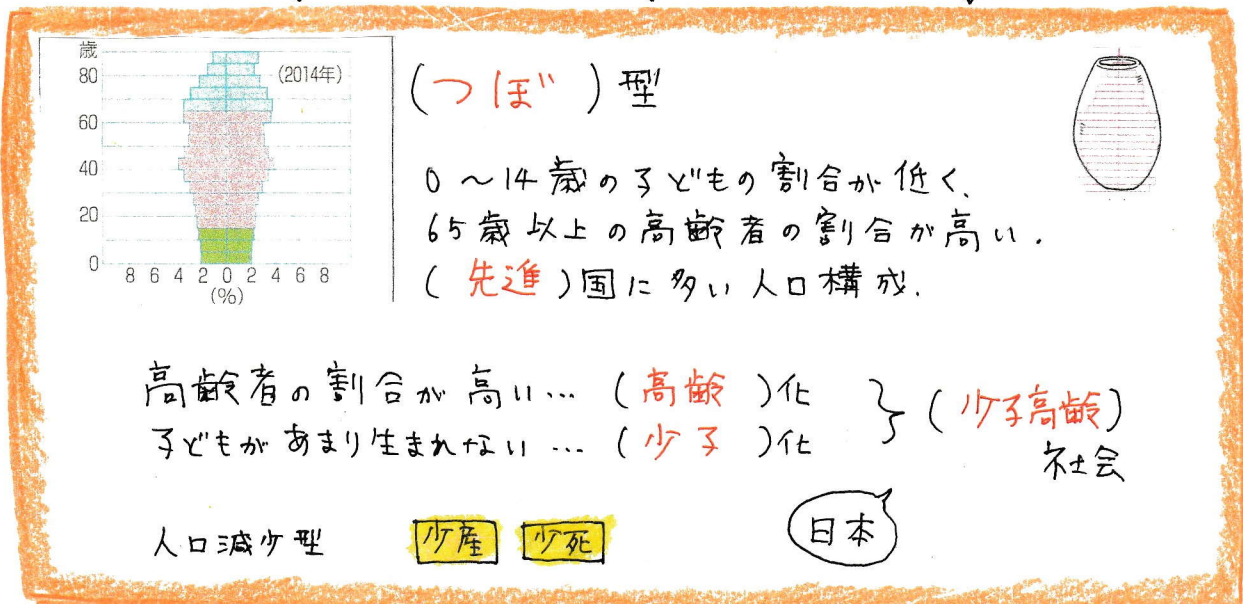 歳
80
60
40
20
0
(2014年)
8 6 4 2 0 2 4 6 8
(%)
(つぼ)型
0～14歳の子どもの割合が低く、
65歳以上の高齢者の割合が高い.
(先進)国に多い人口構成.
高齢者の割合が高い…(高齢)化
子どもがあまり生まれない…(少子)化
(少子高齢)
社会
人口減少型 少産 少死
日本